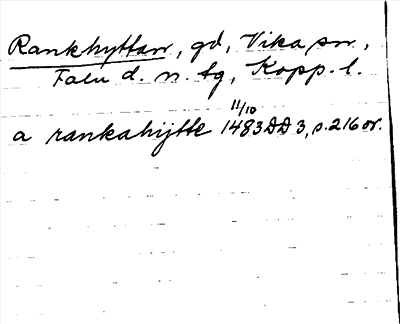 Rankhyttan, gd, Vika sn,
Falu d. n. tg, Kopp. l.
11/10
a rankahijtte 1483 DD 3, s. 216 or.